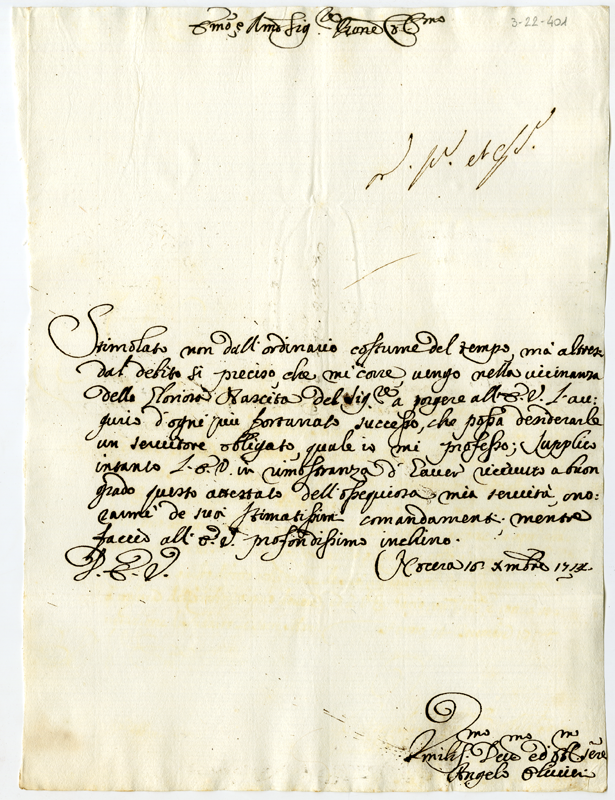 3-22-401
Emo, e Rmo Sig.re Prone Colmo
Stimolato non dall'ordinario costume del tempo, mà altresi
dal debito si preciso, che mi corre vengo nella vicinanza
della Gloriosa Nascita del Sig.re à porgere all'E.V. l'au-
gurio d'ogni più fortunato successo, che possa desiderarle
un servitore obligato, quale io mi professo; Supplico
intanto l'E.V. in dimostranza d'haver ricevuto a buon
grado questo attestato dell'ossequiosa mia servitù, ono-
rarmi de suoi stimatissimi comandamenti, mentre
faccio all'E.V. profondissimo inchino.
D. E. V. Nocera 16 Xmbre 1714.
Umiliss.mo Devmo ed obl.mo Serre
Angelo Olivieri